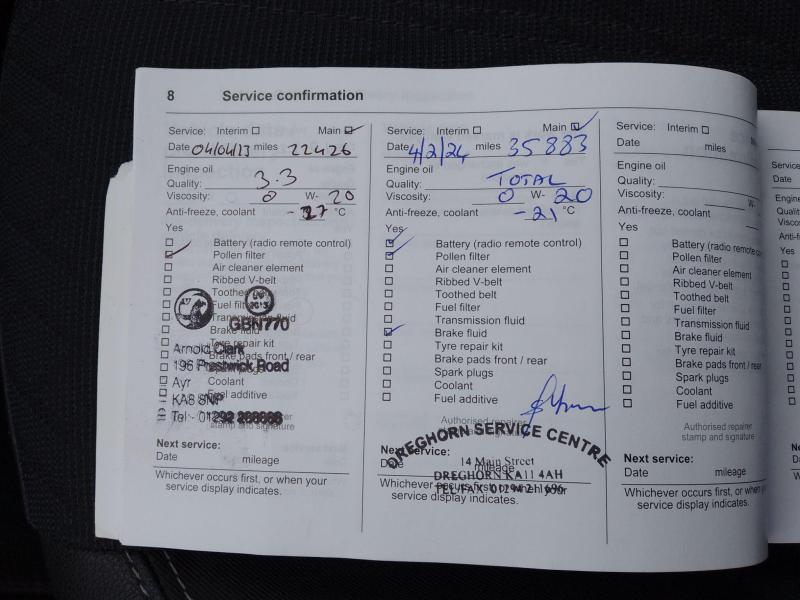 8 Service confirmation
Service: Interim Main
Date 04/04/23 miles 22426
Engine oil
Quality: 3.3
Viscosity: 0 W- 20
Anti-freeze, coolant -27 °C
Yes
Battery (radio remote control)
Pollen filter
Air cleaner element
Ribbed V-belt
Toothed belt
Fuel filter
Transmission fluid
GBN770
Brake fluid
Tyre repair kit
Arnold Clark
Brake pads front / rear
196 Prestwick Road
Spark plugs
Ayr
Coolant
KA8 8NP
Fuel additive
Tel - 01292
stamp and signature
Next service:
Date mileage
Whichever occurs first, or when your
service display indicates.
Service: Interim Main
Date 4/2/24 miles 35883
Engine oil
Quality: TOTAL
Viscosity: 0 W- 20
Anti-freeze, coolant -21 °C
Yes
Battery (radio remote control)
Pollen filter
Air cleaner element
Ribbed V-belt
Toothed belt
Fuel filter
Transmission fluid
Brake fluid
Tyre repair kit
Brake pads front / rear
Spark plugs
Coolant
Fuel additive
Authorised repairer
stamp and signature
DREGHORN SERVICE CENTRE
Next service:
14 Main Street
Date mileage
DREGHORN KA11 4AH
TEL/FAX 01294 211696
Whichever occurs first, or when your
service display indicates.
Service: Interim
Date miles
Engine oil
Quality:
Viscosity:
Anti-freeze, coolant
Yes
Battery (radio remote
Pollen filter
Air cleaner element
Ribbed V-belt
Toothed belt
Fuel filter
Transmission fluid
Brake fluid
Tyre repair kit
Brake pads front / rear
Spark plugs
Coolant
Fuel additive
Authorised repairer
stamp and signature
Next service:
Date mileage
Whichever occurs first, or when
service display indicates.
Service:
Date
Engine
Quality
Viscos
Anti-f
Yes
Date